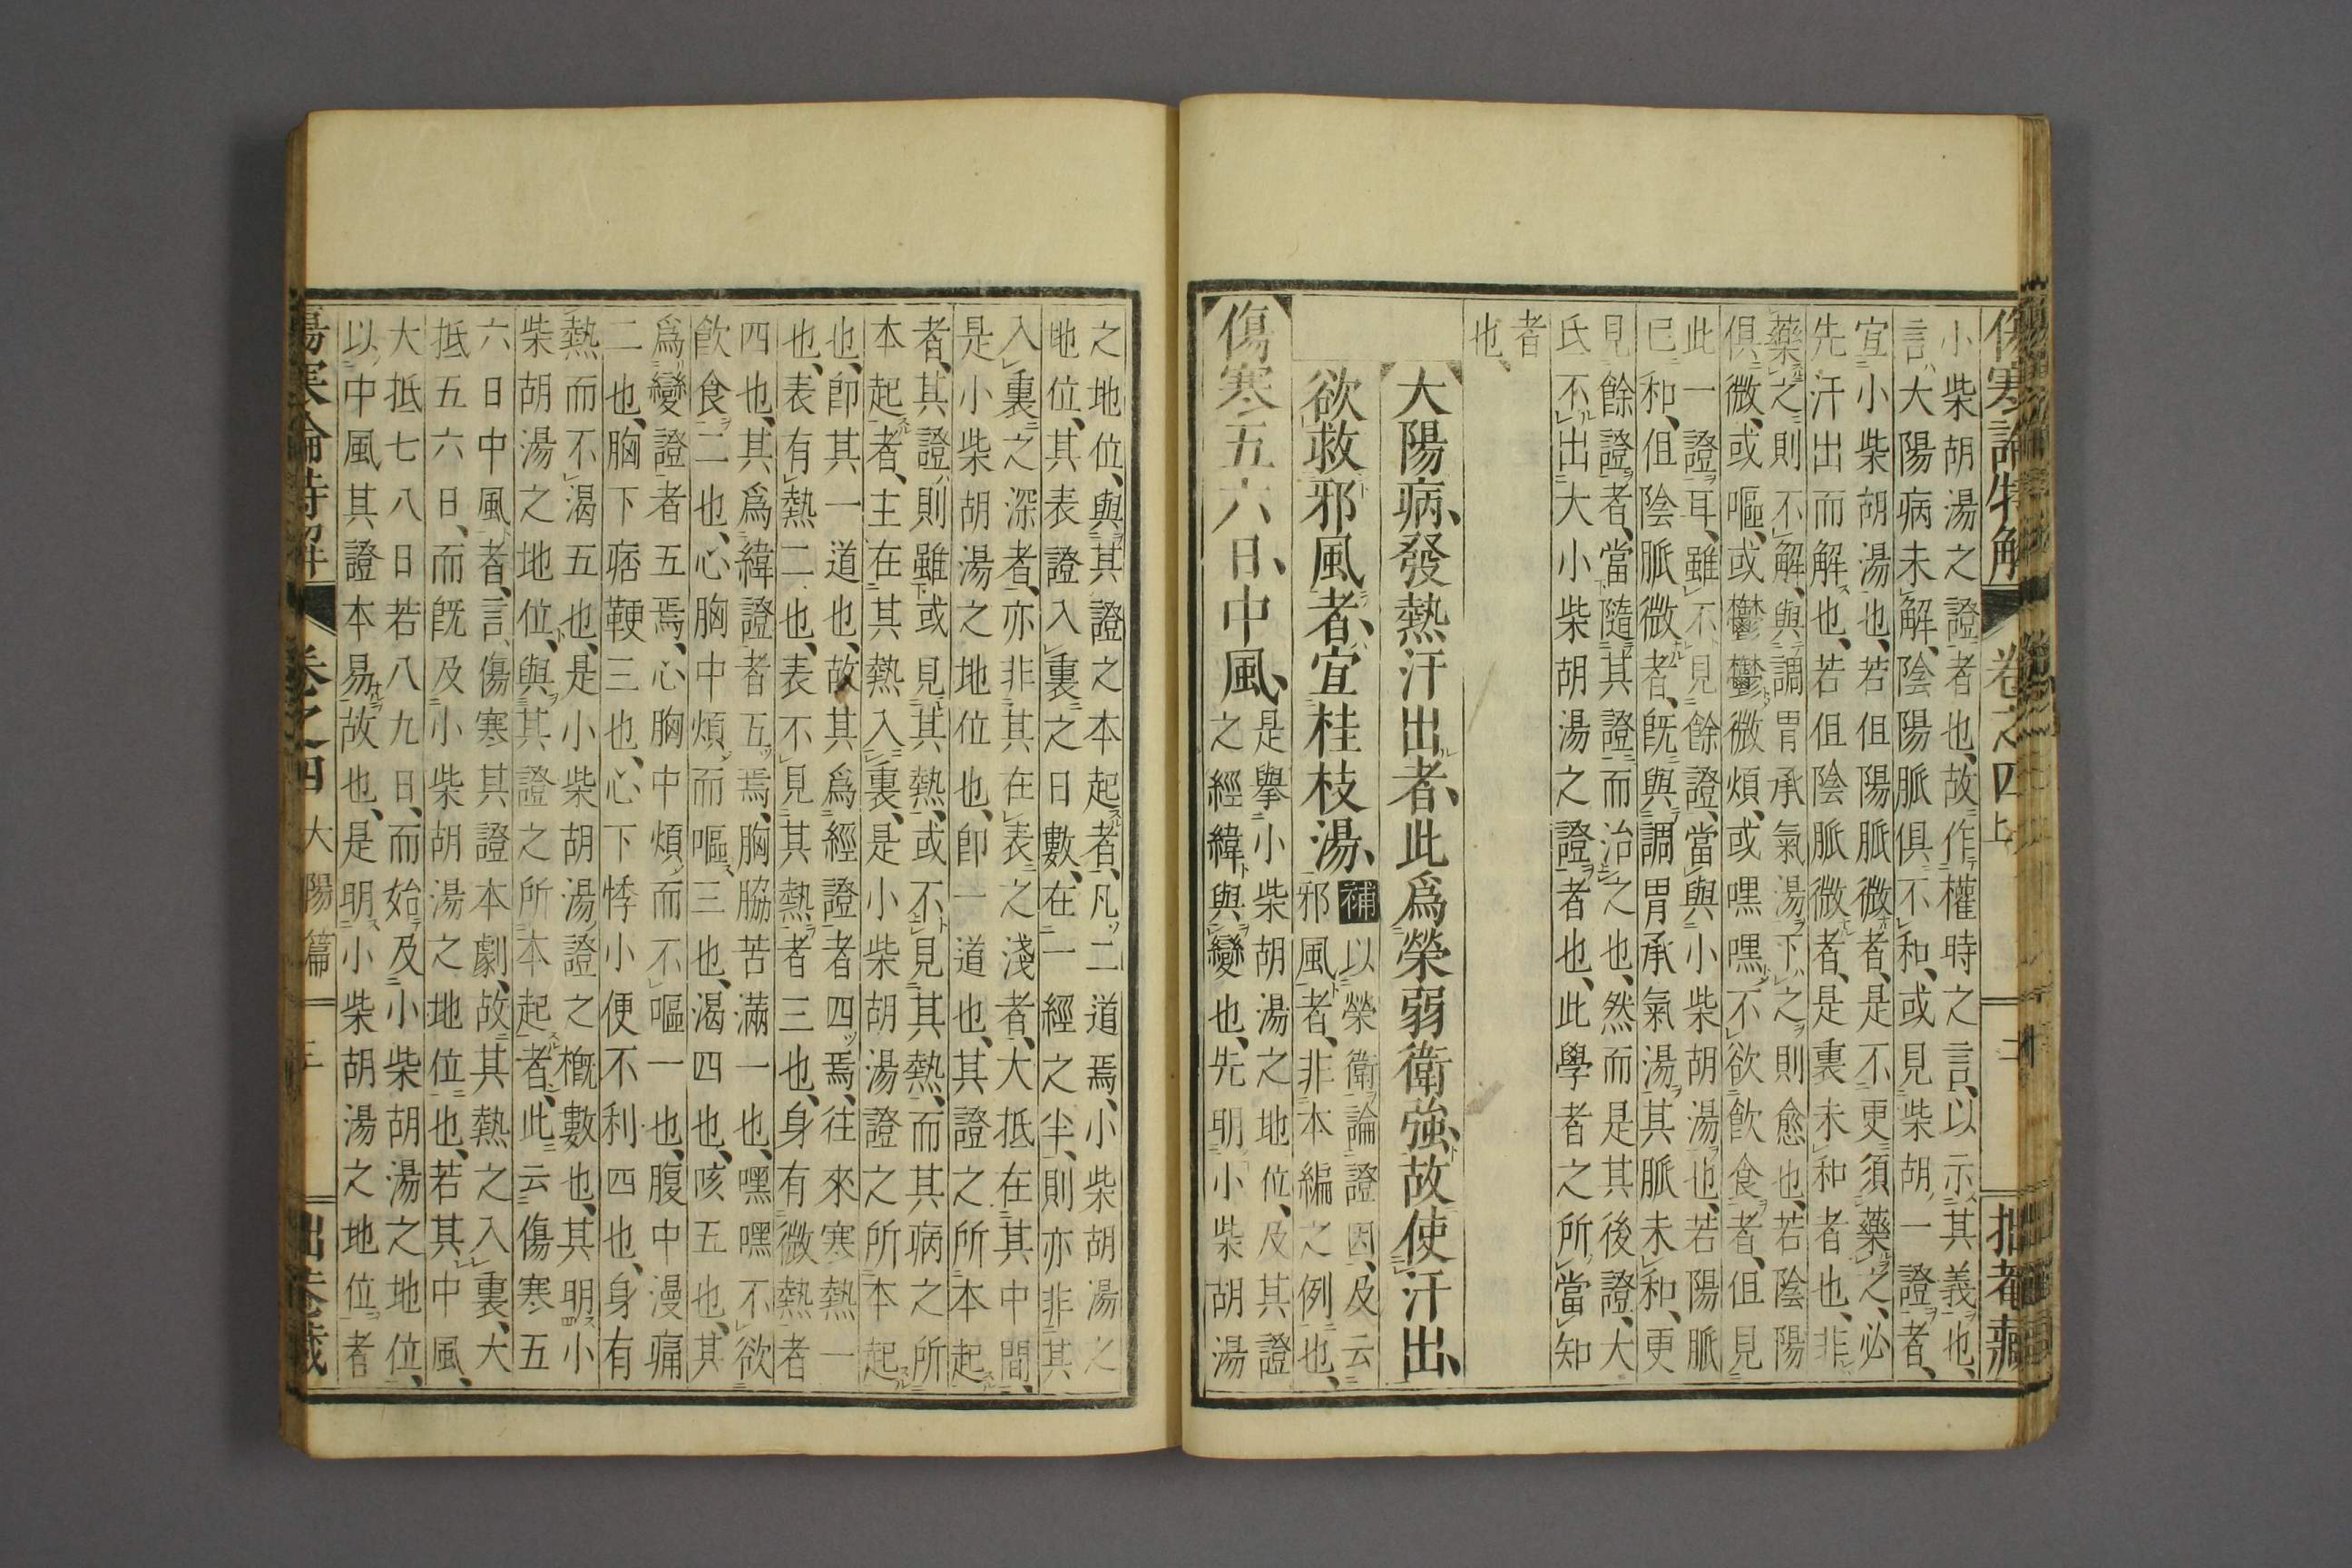 傷寒論特解 卷之四上 二十 拙者藏
小柴胡湯之證者也、故作權時之言、以示其義也、
言、大陽病未解、陰陽脈俱不和、或見柴胡一證者、
宜小柴胡湯也、若但陽脈微者、是不更須藥之、必
先汗出而解也、若但陰脈微者、是裏未和者也、非
藥之則不解、與調胃承氣湯下之則愈也、若陰陽
俱微、或嘔、或鬱鬱微煩、或嘿嘿不欲飲食者、但見
此一證耳、雖不見餘證、當與小柴胡湯也、若陽脈
已和、但陰脈微者、既與調胃承氣湯、其脈未和、更
見餘證者、當隨其證而治之也、然而是其後證、大
氐不出大小柴胡湯之證者也、此學者之所當知
者
也、
大陽病、發熱汗出者、此爲榮弱衛強、故使汗出、
欲救邪風者、宜桂枝湯、補以榮衛論證因、及云
邪風者、非本編之例也、
傷寒五六日、中風、是擧小柴胡湯之地位、及其證
之經緯與變也、先明小柴胡湯
之地位、與其證之本起者、凡二道焉、小柴胡湯之
地位、其表證入裏之日數、在一經之半、則亦非其
入裏之深者、亦非其在表之淺者、大抵在其中間、
是小柴胡湯之地位也、卽一道也、其證之所本起
者、其證、則雖或見其熱、或不見其熱、而其病之所
本起者、主在其熱入裏、是小柴胡湯證之所本起
也、卽其一道也、故其爲經證者四焉、往來寒熱一
也、表有熱二也、表不見其熱者三也、身有微熱者
四也、其爲緯證者五焉、胸脇苦滿一也、嘿嘿不欲
飲食二也、心胸中煩而嘔三也、渴四也、咳五也、其
爲變證者五焉、心胸中煩而不嘔一也、腹中漫痛
二也、胸下痞鞕三也、心下悸小便不利四也、身有
熱而不渴五也、是小柴胡湯證之概數也、其明小
柴胡湯之地位、與其證之所本起者、此云傷寒五
六日中風者、言、傷寒其證本劇、故其熱之入裏、大
抵五六日、而既及小柴胡湯之地位也、若其中風、
大抵七八日若八九日、而始及小柴胡湯之地位、
以中風其證本易故也、是明小柴胡湯之地位者
傷寒論特解 卷之四 大陽篇